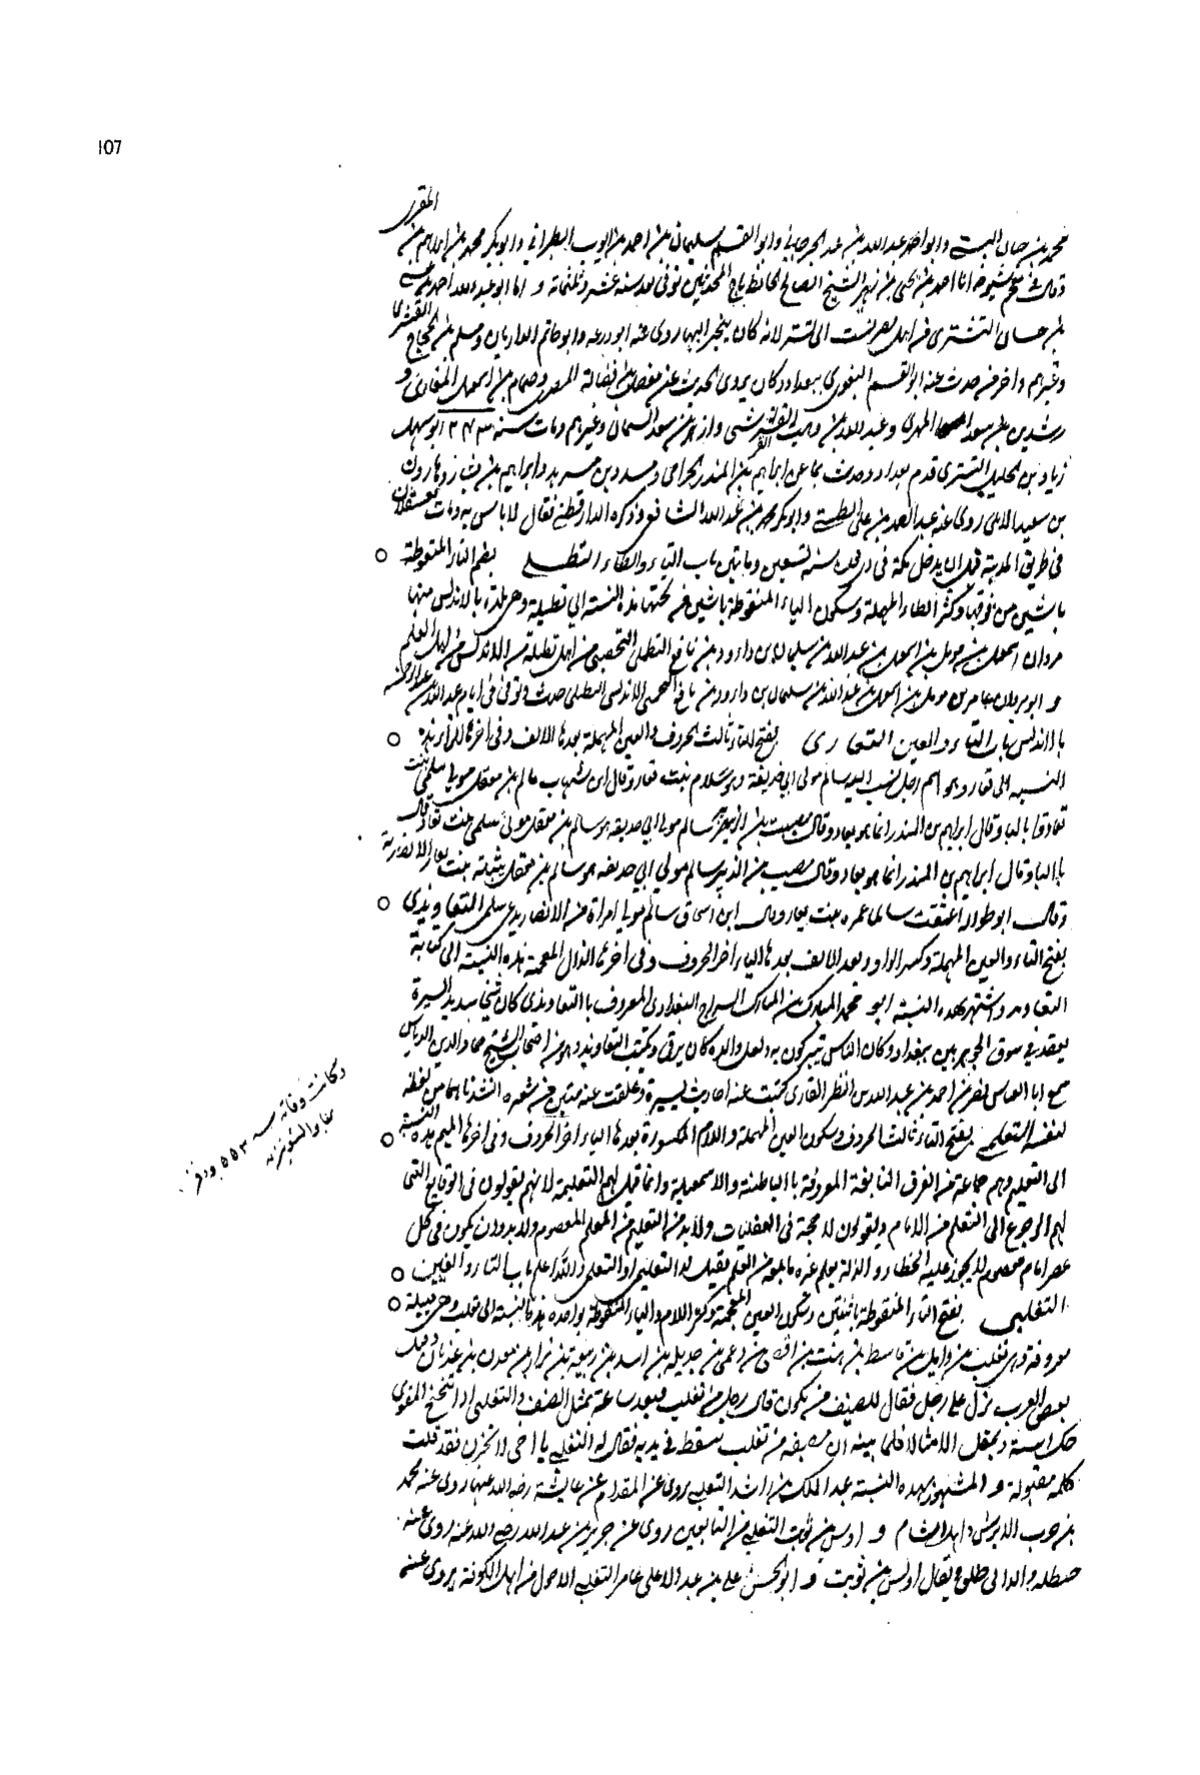 107
المقرى
محمد بن حبان البستى وابو احمد عبد الله بن عدى الجرجانى وابو القسم سليمان بن احمد بن ايوب الطبرانى وابو بكر محمد بن ابراهم بن
وقال فى معجم شيوخه انا احمد بن يحيى بن زهير الشيخ الصالح الحافظ تاج المحدثين توفى بعد سنه عشر وثلثمائه و اما ابو عبد الله احمد بن عيسى
بن حسان التسترى من اهل مصر نسب الى تستر لانه كان يتجر اليها روى عنه ابو زرعه وابو حاتم الرازيان ومسلم بن الحجاج القشيرى
وغيرهم واخر من حدث عنه ابو القسم البغوى ببغداد وكان يروى الحديث عن مفضل بن فضالة المصرى وضمام بن اسمعيل المعافرى و
رشدين بن سعد المهرى وعبد الله بن وهب القرشى وازهر بن سعد السمان وغيرهم ومات سنه ٢٤٣ ابو سهل
زياد بن الخليل التسترى قدم بغداد وحدث بها عن ابراهيم بن المنذر الحزامى ومسدد بن مسرهد وابراهيم بن وهارون
بن سعيد الايلى روى عنه عبد الصمد بن على الطستى وابو بكر محمد بن عبد الله الشافعى وذكره الدارقطنى فقال لا باس به ومات بعسقلان
فى طريق المدينة قبل ان يدخل مكة فى سنة تسعين ومايتين باب التاء والطاء التطيلى بضم التاء المنقوطة
باثنتين من فوقها وكسر الطاء المهملة وسكون الياء المنقوطة باثنتين من تحتها هذه النسبة الى تطيلة وهى بلدة بالاندلس منها
مروان اسمعيل بن مؤمل بن اسمعيل بن عبد الله بن سليمان بن داود بن نافع التطيلى من اهل تطيلة من الاندلس من اهل العلم
و ابو مروان عامر بن مؤمل بن اسمعيل بن عبد الله بن سليمان بن داود بن نافع الاندلسى التطيلى حدث وتوفى فى ايام عبد الله بن
بالاندلس باب التاء والعين التعارى بفتح التاء ثالث الحروف والعين المهملة بعدها الالف وفى اخرها الراء هذه
النسبه الى تعار وهو اسم رجل نسب اليه سالم مولى ابى حذيفة وهو سلام بنت تعار وقال ابن شهاب سالم بن معقل مولى سلمى بنت
تعار بالتا وقال ابراهيم بن المنذر انما هو يعار وقال مصعب بن الزبير سالم مولى ابى حذيفه هو سالم بن معقل مولى سلمى بنت تعار وقال
بالتا وقال ابراهيم بن المنذر انما هو يعار وقال مصعب بن الزبير سالم مولى ابى حذيفه هو سالم بن معقل ثبيتة بنت يعار الانصارية
وقال ابو طوالة اعتقت سالما عمره بنت يعار وقال ابن اسحاق سالم مولى امراة من الانصار يدعى سلمى التعاويذى
بفتح التاء والعين المهملة وكسر الواو وبعد الالف بعدها الياء اخر الحروف وفى اخرها الذال المعجمة هذه النسبة الى كتابة
التعاويذ واشتهر بهذه النسبة ابو محمد المبارك بن المبارك السراج البغدادى المعروف بالتعاويذى كان شيخا سديد السيرة
يقعد فى سوق الجوهريين ببغداد وكان الناس يتبركون به ولعل والده كان يرقى ويكتب التعاويذ وهو من اصحاب الشيخ حماد الدباس
سمع ابا العباس نصر بن احمد بن عبد الله بن النظر القارى كتبت عنه احاديث يسيرة وعلقت عنه بيتين من شعره انشدناهما من لفظه
لنفسه التعليمى بفتح التاء ثالث الحروف وسكون العين المهملة واللام المكسورة بعدها الياء اخر الحروف وفى اخرها الميم هذه النسبة
الى التعليم وهم جماعة من الفرق الزايغة المعروفة بالباطنية والاسمعيلية وانما قيل لهم التعليمية لانهم يقولون فى الوقايع التى
لهم الرجوع الى التعلم من الامام ويقولون لا حجة فى العقليات ولا بد من التعليم من المعلم المعصوم ولا بد وان يكون فى كل
عصر امام معصوم لا يجوز عليه الخطا والزلة يعلم غيره ما بلغه من العلم فقيل له التعليمى او التعلمى والله اعلم باب التاء والغين
التغلبى بفتح التاء المنقوطة باثنتين وسكون الغين المعجمة وكسر اللام والباء المنقوطة بواحدة هذه النسبة الى تغلب وهى قبيلة
معروفة وهى تغلب بن وايل بن قاسط بن هنب بن افصى بن دعمى بن جديلة بن اسد بن ربيعة بن نزار بن معد بن عدنان وقيل
بعض العرب نزل على رجل فقال للضيف ممن يكون قال رجل من تغلب فبعد ساعة تمثل الضيف والتغلبى اذا تنحنح للقرى
حك استه وتمثل الامثالا فلما بينه ان مضيفه من تغلب سقط فى يديه فقال له التغلبى يا اخى لا تحزن فقد قلت
كلمة مقبولة و المشهور بهذه النسبة عبد الملك بن راشد التغلبى روى عن المقدام عن عايشة رضى الله عنها روى عنه محمد
بن حرب الابرش اهل الشام و اوس بن ثويب التغلبى من التابعين روى عن جرير بن عبد الله رضى الله عنه روى عنه
حنظله والد ابى طلوع يقال اوس بن ثويب و ابو الحسن على بن عبد الاعلى عامر التغلبى الاحول من اهل الكوفة يروى عنه
وكانت وفاته سنه ٥٥٣ ودفن
بمقابر الشونيزيه